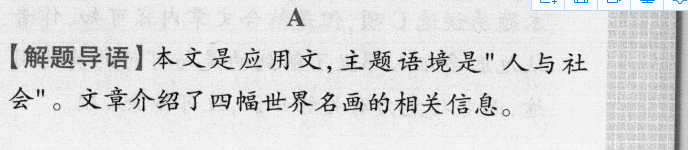 A
【解题导语】本文是应用文,主题语境是"人与社
会"。文章介绍了四幅世界名画的相关信息。